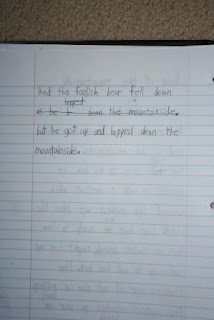 And the foolish bear fell down
hopped
as he down the mountainside.
but he got up and hopped down the
mountainside.